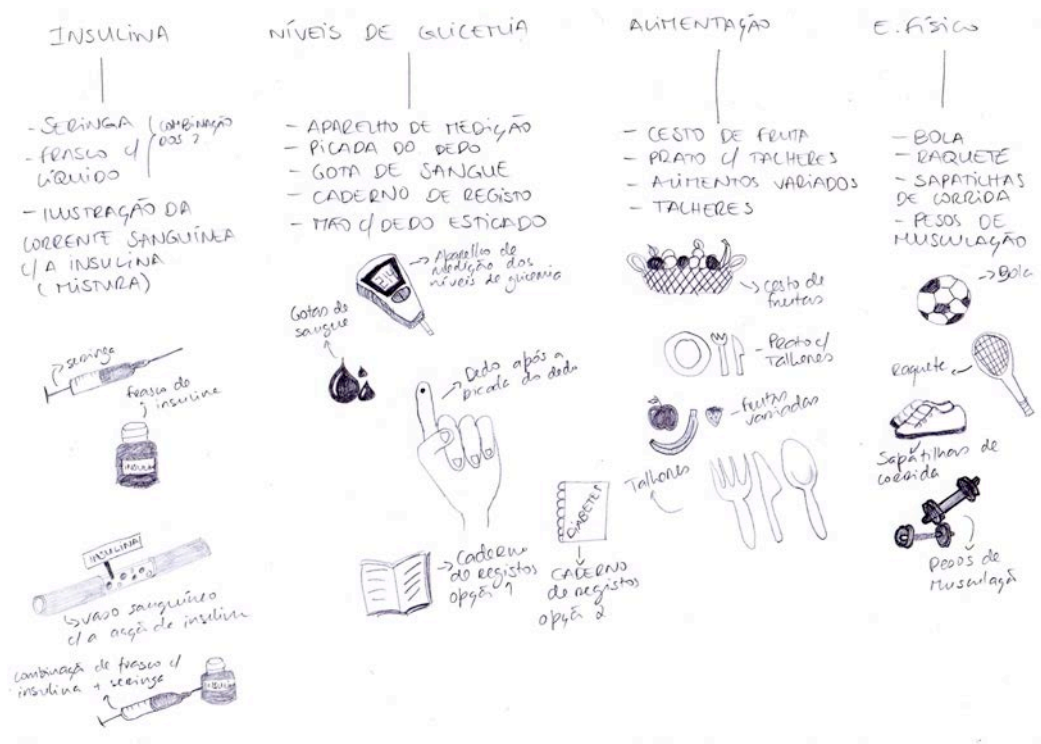 INSULINA
- SERINGA
- FRASCO C/
LÍQUIDO
(COMBINAÇÃO
DOS 2
- ILUSTRAÇÃO DA
CORRENTE SANGUÍNEA
C/ A INSULINA
(MISTURA)
seringa
frasco de
insulina
INSULINA
vaso sanguíneo
c/ a acçã de insulina
combinaçã de frasco c/
insulina + seringa
NÍVEIS DE GLICEMIA
- APARELHO DE MEDIÇÃO
- PICADA DO DEDO
- GOTA DE SANGUE
- CADERNO DE REGISTO
- MÃO C/ DEDO ESTICADO
Aparelho de
medição dos
níveis de glicemia
Gotas de
sangue
Dedo após a
picada do dedo
Caderno
de registos
opçã 1
DIABETES
CADERNO
de registos
opçã 2
ALIMENTAÇÃO
- CESTO DE FRUTA
- PRATO C/ TALHERES
- ALIMENTOS VARIADOS
- TALHERES
cesto de
frutas
Prato c/
Talheres
frutas
variadas
Talheres
E. FÍSICO
- BOLA
- RAQUETE
- SAPATILHAS
DE CORRIDA
- PESOS DE
MUSCULAÇÃO
Bola
Raquete
Sapatilhas de
corrida
Pesos de
Musculaçã